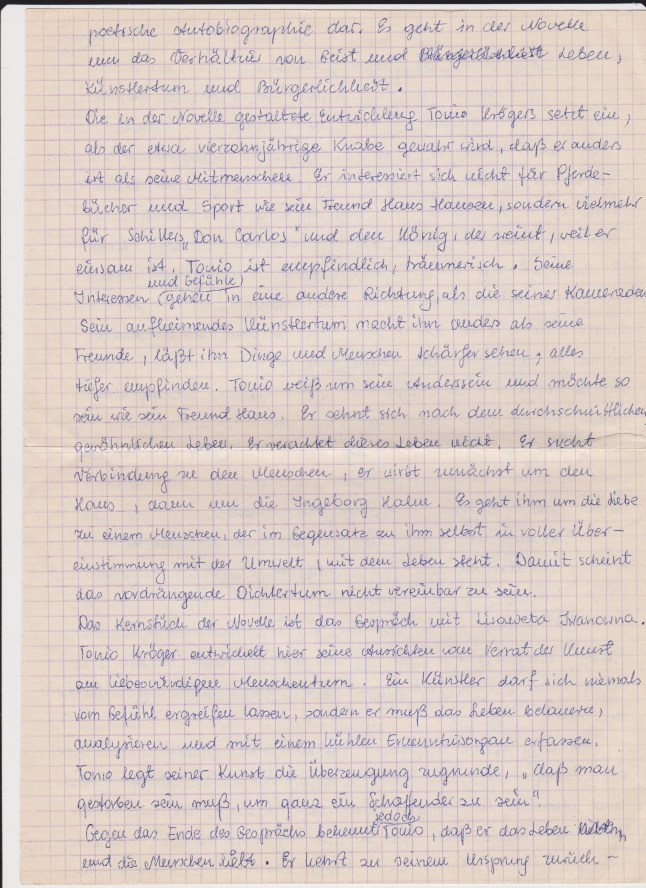 poetische Autobiographie dar. Es geht in der Novelle
um das Verhältnis von Geist und Leben,
Künstlertum und Bürgerlichkeit.
Die in der Novelle gestaltete Entwicklung Tonio Krögers setzt ein,
als der etwa vierzehnjährige Knabe gewahr wird, daß er anders
ist als seine Mitmenschen. Er interessiert sich nicht für Pferde-
bücher und Sport wie sein Freund Hans Hansen, sondern vielmehr
für Schillers „Don Carlos" und den König, der weint, weil er
einsam ist. Tonio ist empfindlich, träumerisch. Seine
Interessen (und Gefühle) gehen in eine andere Richtung, als die seiner Kameraden
Sein aufkeimendes Künstlertum macht ihn anders als seine
Freunde, läßt ihn Dinge und Menschen schärfer sehen, alles
tiefer empfinden. Tonio weiß um sein Anderssein und möchte so
sein wie sein Freund Hans. Er sehnt sich nach dem durchschnittlichen
gewöhnlichen Leben. Er verachtet dieses Leben nicht. Er sucht
Verbindung zu den Menschen, er wirbt zunächst um den
Hans, dann um die Ingeborg Holm. Es geht ihm um die Liebe
zu einem Menschen, der im Gegensatz zu ihm selbst in voller Über-
einstimmung mit der Umwelt, mit dem Leben steht. Damit scheint
das vordrängende Dichtertum nicht vereinbar zu sein.
Das Kernstück der Novelle ist das Gespräch mit Lisaweta Iwanowna.
Tonio Kröger entwickelt hier seine Ansichten vom Verrat der Kunst
am liebenswürdigen Menschentum. Ein Künstler darf sich niemals
vom Gefühl ergreifen lassen, sondern er muß das Leben belauern,
analysieren und mit einem kühlen Erkenntnisorgan erfassen.
Tonio legt seiner Kunst die Überzeugung zugrunde, „daß man
gestorben sein muß, um ganz ein Schaffender zu sein".
Gegen das Ende des Gesprächs bekennt jedoch Tonio, daß er das Leben
und die Menschen liebt. Er kehrt zu seinem Ursprung zurück –